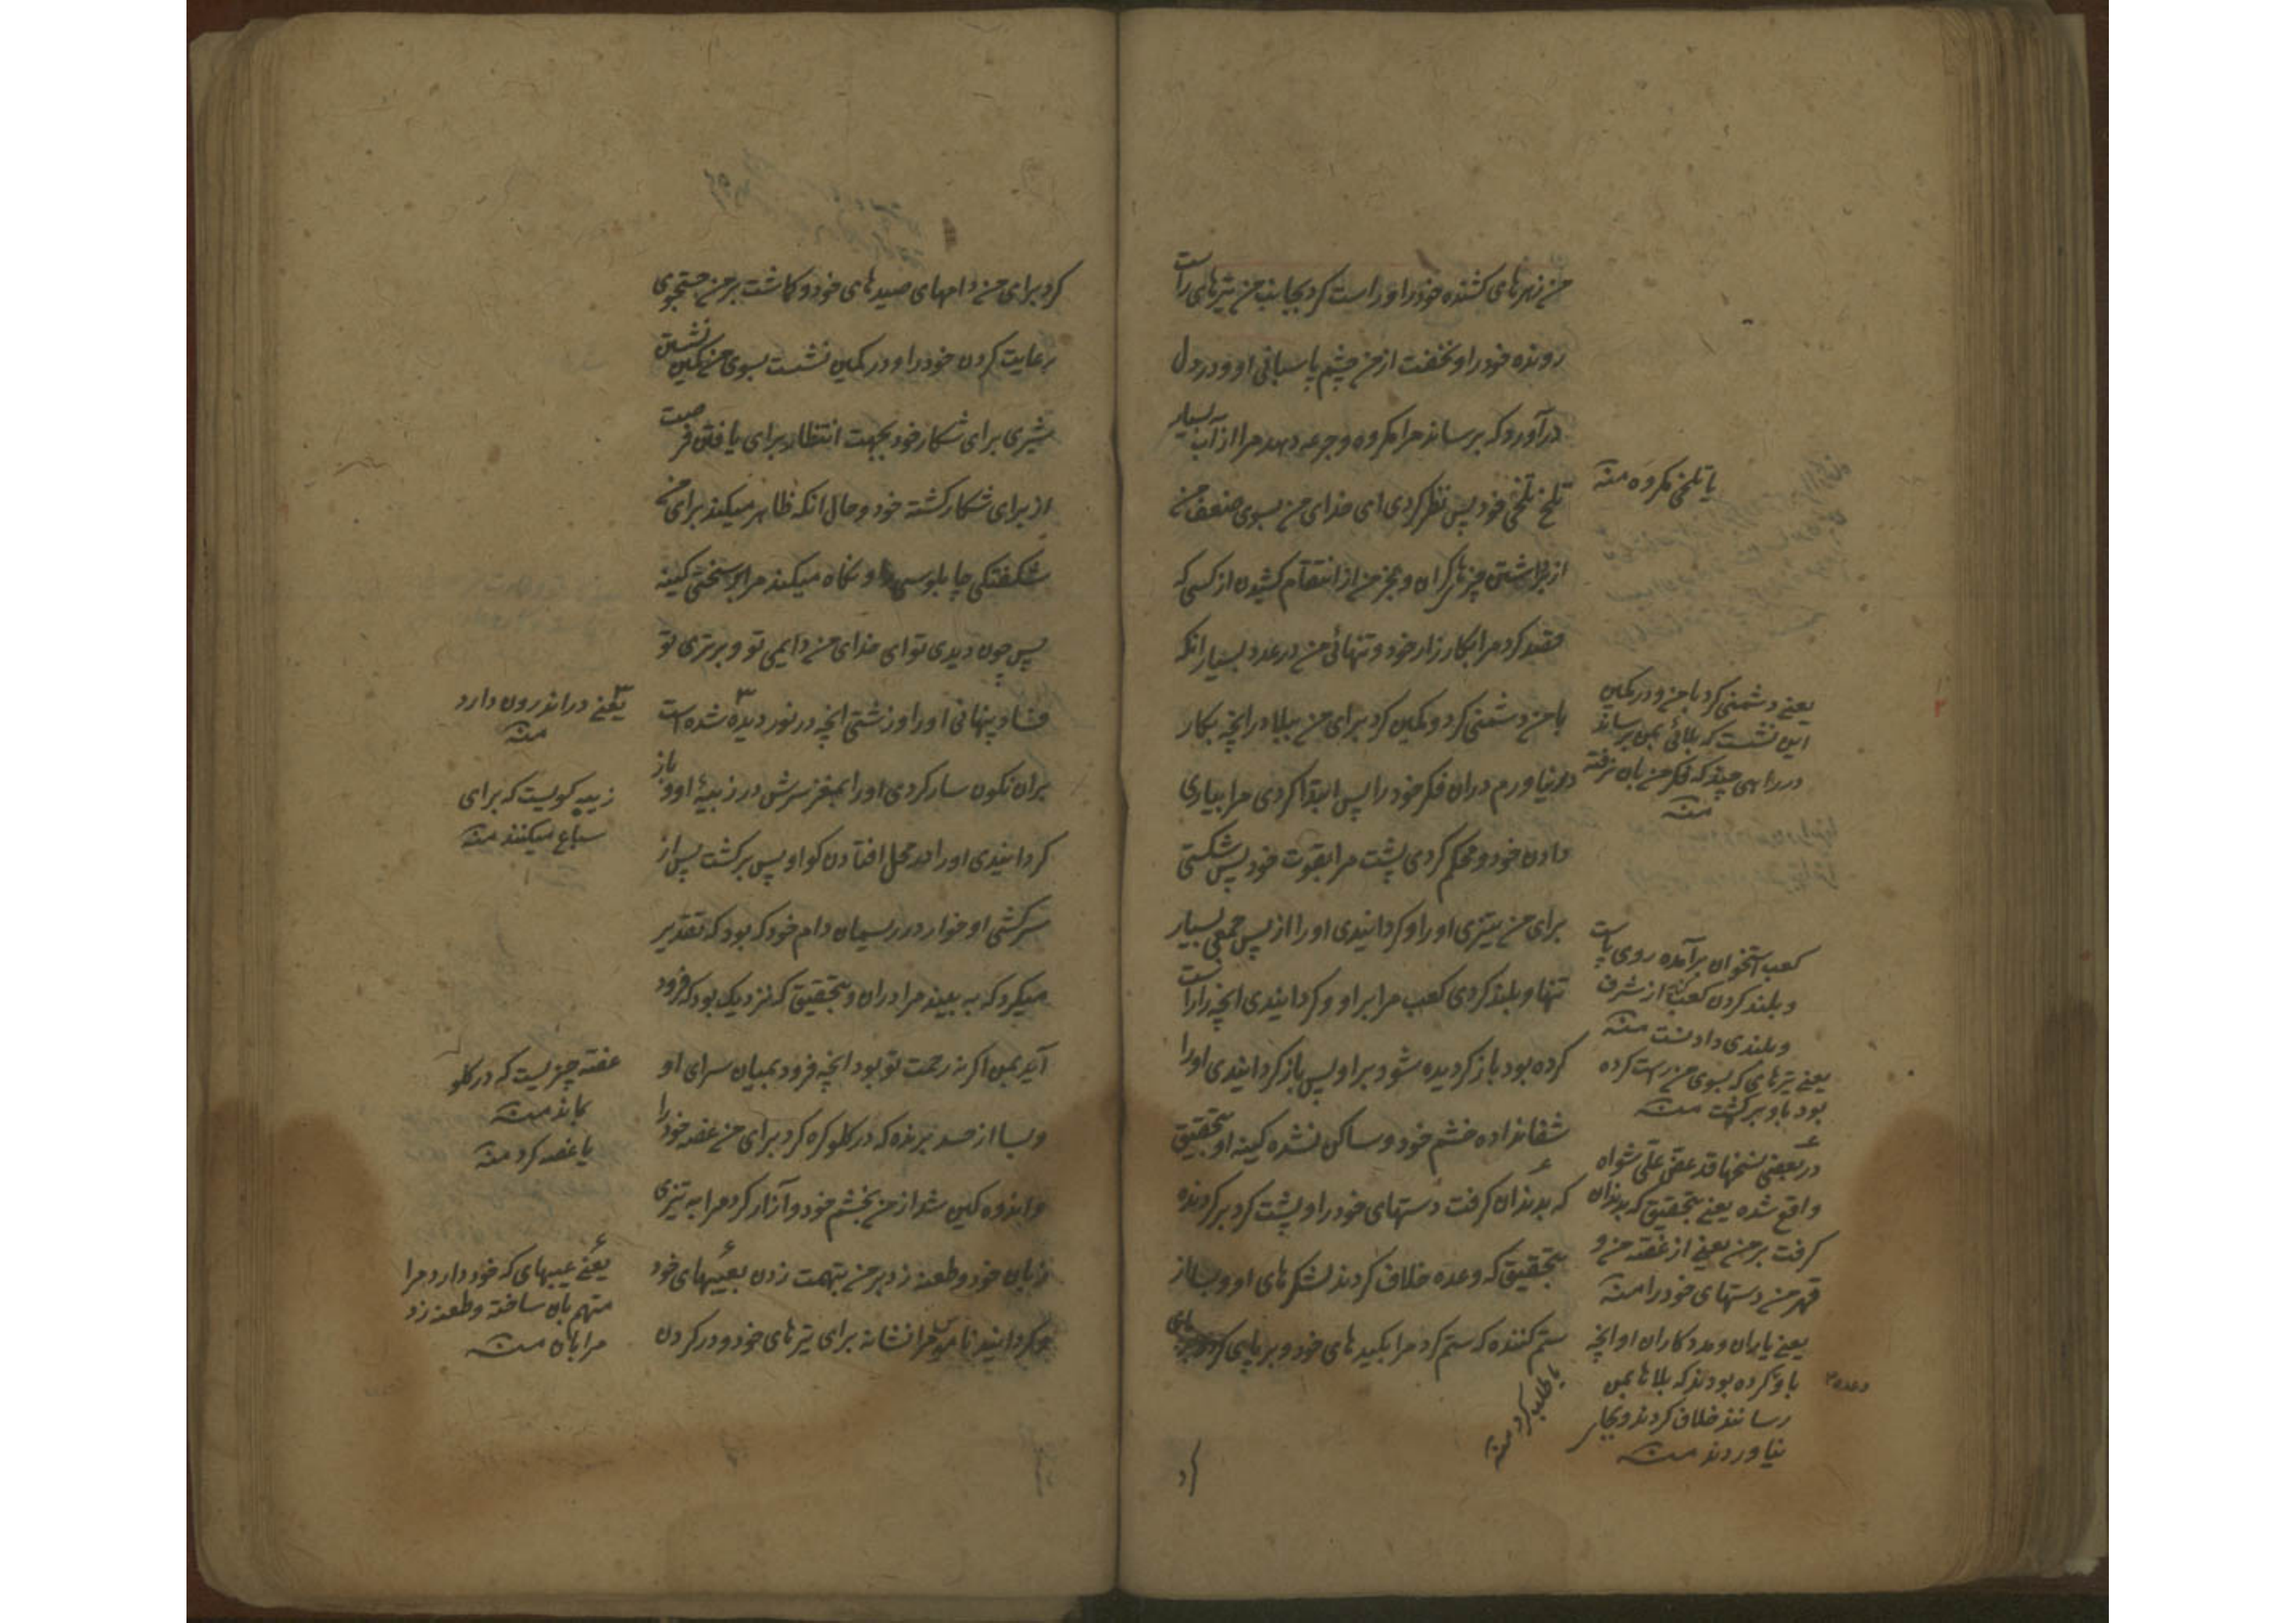 من زهرهای کشنده خود را و راست کرد بجانب من تیرهای راست
رونده خود را و نخفت از من چشم پاسبانی او و در دل
درآورد که برساند مرا مکروه و جرعه دهد مرا از آب بسیار
تلخ تلخی خود پس نظر کردی ای خدای من بسوی ضعف من
از برداشتن چیزهای گران و عجز من از انتقام کشیدن از کسی که
قصد کرد مرا بکارزار خود و تنهائی من در عدد بسیار انکه
با من دشمنی کرد و کمین کرد برای من ببلا در انچه بکار
در نیاورم در ان فکر خود را پس ابتدا کردی مرا بیاری
دادن خود و محکم کردی پشت مرا بقوت خود پس شکستی
برای من تیزی او را و کردانیدی او را از پس جمعی بسیار
تنها و بلند کردی کعب مرا بر او و کردانیدی انچه را راست
کرده بود باز کردیده شود بر او پس باز کردانیدی او را
شفا نداده خشم خود و ساکن نشده کینه او بتحقیق
که بدندان کرفت دستهای خود را و پشت کرد بر کردنده
بتحقیق که وعده خلاف کردند لشکرهای او و بسا از
ستم کننده که ستم کرد مرا بکیدهای خود و بر پای
یا تلخی مکروه منه
یعنے دشمنی کرد با من و در کمین
این نشست که بلائی بمن رساند
در راهی چند که فکر من بان نرفته
منه
کعب استخوان برآمده روی پاست
و بلند کردن کعب کنایه از شرف
و بلندی دادنست منه
یعنے تیرهای که بسوی من راست کرده
بود باو برکشت منه
در بعضی نسخها قد عض علی شواه
واقع شده یعنے بتحقیق که بدندان
کرفت بر من یعنے از غصه من و
قهر من دستهای خود را منه
یعنے یاران و مددکاران او انچه
باو وعده کرده بودند که بلاها بمن
رسانند خلاف کردند و بجای
نیاوردند منه
یا طلب کرد منه
کرد
کرد برای من دامهای صیدهای خود و کماشت بر من جستجوی
رعایت کردن خود را و در کمین نشست بسوی من کمین نشستن
شیری برای شکار خود بجهت انتظار برای یافتن فرصت
از برای شکار کشته خود و حال انکه ظاهر میکند برای من
شکفتکی چاپلوسی را و نکاه میکند مرا بر سختی کینه
پس چون دیدی تو ای خدای من دایمی تو و برتری تو
فساد پنهانی او را و زشتی انچه در نور دیده شده است
بران نکون سار کردی او را بمغز سرش در زبیهٔ او و باز
کردانیدی او را در محل افتادن کو او پس برکشت پس از
سرکشی او خوار در ریسمان دام خود که بود که تقدیر
میکرد که به بیند مرا در ان و بتحقیق که نزدیک بود که فرود
آید بمن اکر نه رحمت تو بود انچه فرود بمیان سرای او
و بسا از حسد برنده که در کلو کره کرد برای من غصه خود را
و اندوهکین شد از من بخشم خود و آزار کرد مرا به تیزی
زبان خود و طعنه زد بر من بتهمت زدن بعیبهای خود
و کردانید ناموس مرا نشانه برای تیرهای خود و در کردن
یعنے در اندرون دارد
منه
زبیه کویست که برای
سباع میکنند منه
غصه چیزیست که در کلو
بماند منه
یا غصه کرد منه
یعنے عیبهای که خود دارد مرا
متهم بان ساخته و طعنه زد
مرا بان منه